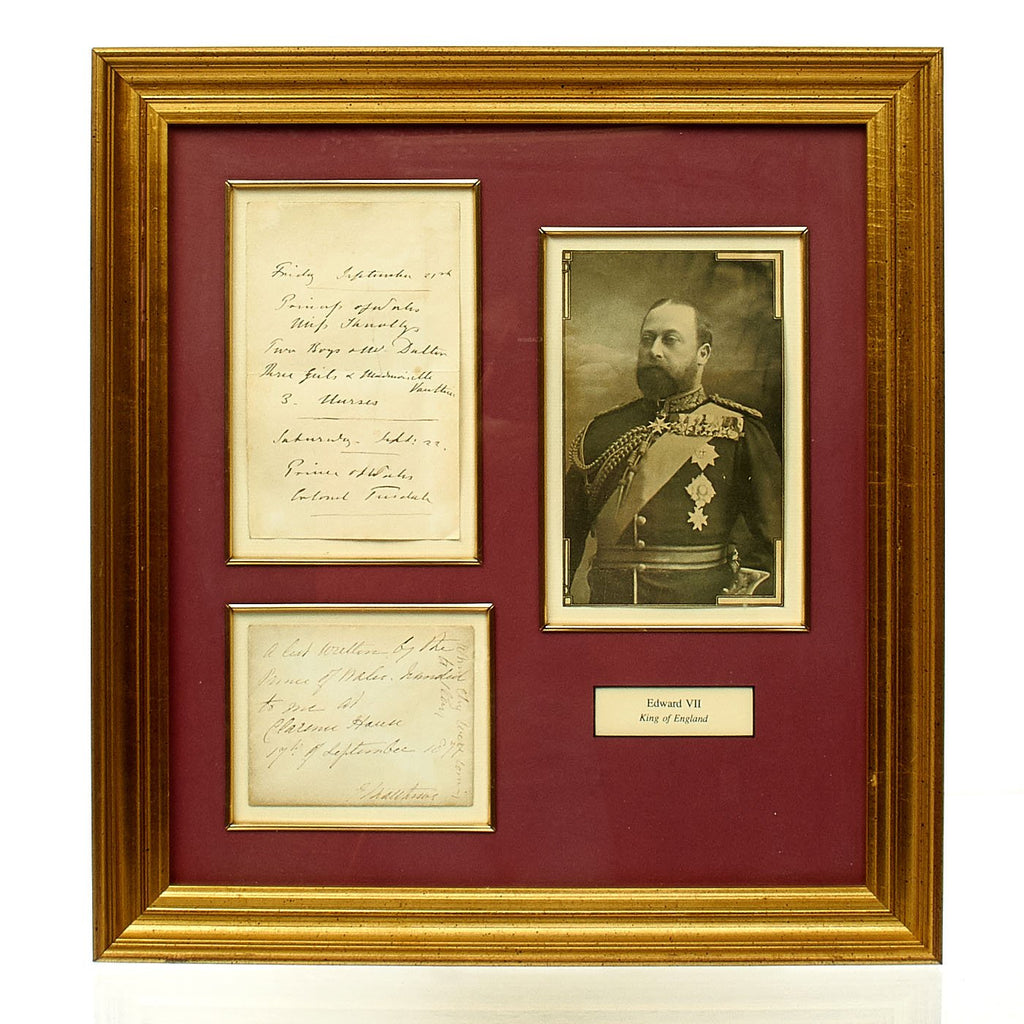 Friday September 21st
Princess of Wales
Miss Knollys
Two Boys & Mr. Dalton
Three Girls & Mademoiselle
Vauthier
3. Nurses
Saturday Sept: 22.
Prince of Wales
Colonel Teesdale
A list written by the
Prince of Wales. handed
to me at
Clarence House
17th of September 18
Edward VII
King of England